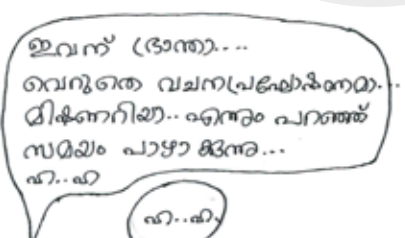 ഇവന് ഭ്രാന്താ....
വെറുതെ വചനപ്രഘോഷണമാ..
മിഷണറിയാ.. എന്നും പറഞ്ഞ്
സമയം പാഴാക്കുന്നു...
ഹ..ഹ
ഹ..ഹ